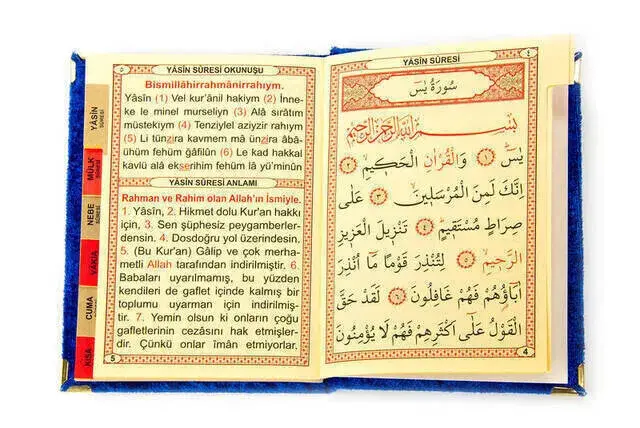 YÂSİN SÛRESİ
٤
سُورَةُ يٰسٓ
بِسْمِ اللهِ الرَّحْمٰنِ الرَّحِيمِ
يٰسٓ ﴿١﴾ وَالْقُرْاٰنِ الْحَكِيمِ ﴿٢﴾
اِنَّكَ لَمِنَ الْمُرْسَلِينَ ﴿٣﴾ عَلٰى
صِرَاطٍ مُسْتَقِيمٍ ﴿٤﴾ تَنْزِيلَ الْعَزِيزِ
الرَّحِيمِ ﴿٥﴾ لِتُنْذِرَ قَوْمًا مَٓا اُنْذِرَ
اٰبَٓاؤُ۬هُمْ فَهُمْ غَافِلُونَ ﴿٦﴾ لَقَدْ حَقَّ
الْقَوْلُ عَلٰٓى اَكْثَرِهِمْ فَهُمْ لَا يُؤْمِنُونَ
4
٥
YÂSİN SÛRESİ OKUNUŞU
Bismillâhirrahmânirrahıym.
Yâsîn (1) Vel kur'ânil hakiym (2) İnne-
ke le minel murseliyn (3) Alâ sırâtım
müstekiym (4) Tenziylel aziyzir rahıym
(5) Li tünzira kavmem mâ ünzira âbâ-
ühüm fehüm ğâfilûn (6) Le kad hakkal
kavlü alâ ekserihim fehüm lâ yü'minûn
YÂSİN SÛRESİ ANLAMI
Rahman ve Rahim olan Allah'ın İsmiyle.
1. Yâsîn, 2. Hikmet dolu Kur'an hakkı
için, 3. Sen şüphesiz peygamberler-
densin. 4. Dosdoğru yol üzerindesin.
5. (Bu Kur'an) Gâlip ve çok merha-
metli Allah tarafından indirilmiştir. 6.
Babaları uyarılmamış, bu yüzden
kendileri de gaflet içinde kalmış bir
toplumu uyarman için indirilmiş-
tir. 7. Yemin olsun ki onların çoğu
gafletlerinin cezasını hak etmişler-
dir. Çünkü onlar îmân etmiyorlar.
5
YÂSİN
SÛRESİ
MÜLK
SÛRESİ
NEBE
SÛRESİ
VAKIA
CUMA
KISA